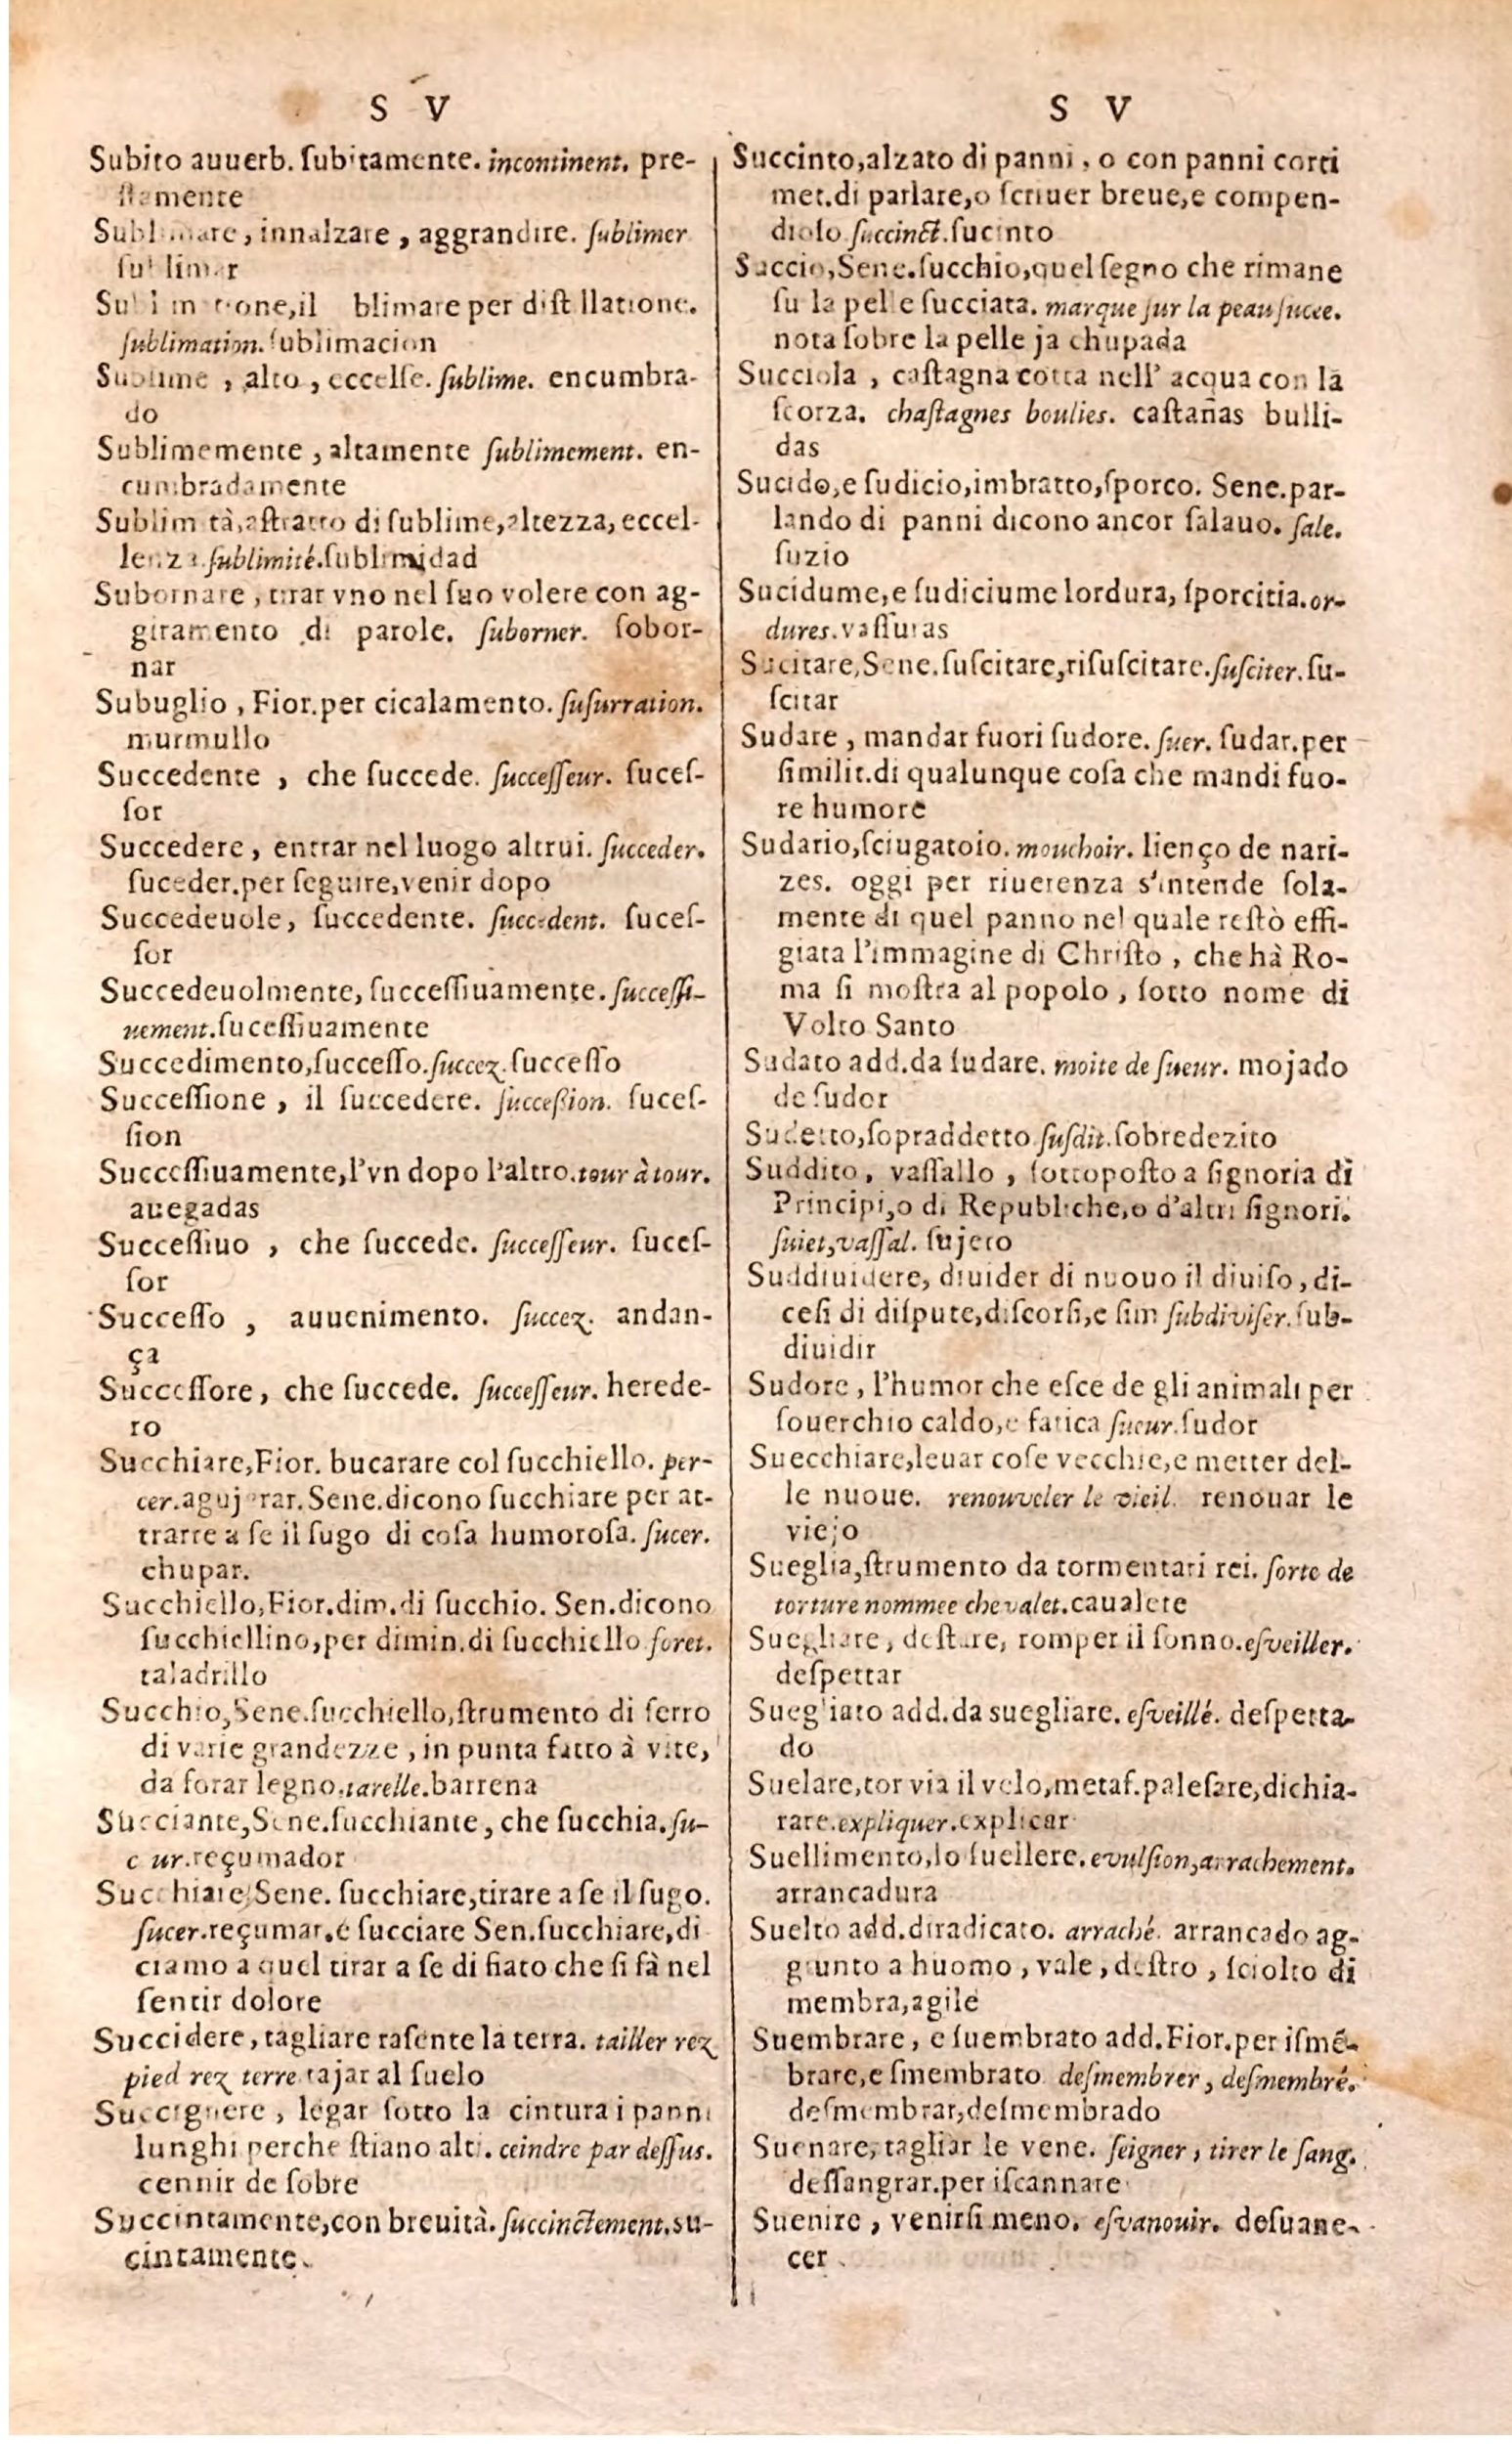 S V
Subito auuerb. ſubitamente. incontinent. pre-
ſtamente
Sublimare, innalzare, aggrandire. ſublimer
ſublimar
blimare per diſtillatione.
ſublimation. ſublimacion
Sublime, alto, eccelſe. ſublime. encumbra-
do
Sublimemente, altamente ſublimement. en-
cumbradamente
Sublimità, aſtratto di ſublime, altezza, eccel-
lenza. ſublimité. ſublimidad
Subornare, tirar vno nel ſuo volere con ag-
giramento di parole. ſuborner. ſobor-
nar
Subuglio, Fior. per cicalamento. ſuſurration.
murmullo
Succedente, che ſuccede. ſucceſſeur. ſuceſ-
ſor
Succedere, entrar nel luogo altrui. ſucceder.
ſuceder. per ſeguire, venir dopo
Succedeuole, ſuccedente. ſuccedent. ſuceſ-
ſor
Succedeuolmente, ſucceſſiuamente. ſucceſſi-
uement. ſuceſſiuamente
Succedimento, ſucceſſo. ſuccez. ſucceſſo
Succeſſione, il ſuccedere. ſucceßion. ſuceſ-
ſion
Succeſſiuamente, l'vn dopo l'altro. tour à tour.
auegadas
Succeſſiuo, che ſuccede. ſucceſſeur. ſuceſ-
ſor
Succeſſo, auuenimento. ſuccez. andan-
ça
Succeſſore, che ſuccede. ſucceſſeur. herede-
ro
Succhiare, Fior. bucarare col ſucchiello. per-
cer. agujerar. Sene. dicono ſucchiare per at-
trarre a ſe il ſugo di coſa humoroſa. ſucer.
chupar.
Succhiello, Fior. dim. di ſucchio. Sen. dicono
ſucchiellino, per dimin. di ſucchiello foret.
taladrillo
Succhio, Sene. ſucchiello, ſtrumento di ferro
di varie grandezze, in punta fatto à vite,
da forar legno. tarelle. barrena
Succiante, Sene. ſucchiante, che ſucchia. ſu-
c ur. reçumador
Succhiare, Sene. ſucchiare, tirare a ſe il ſugo.
ſucer. reçumar. e ſucciare Sen. ſucchiare, di
ciamo a quel tirar a ſe di fiato che ſi fà nel
ſentir dolore
Succidere, tagliare raſente la terra. tailler rez
pied rez terre. tajar al ſuelo
Succignere, legar ſotto la cintura i panni
lunghi perche ſtiano alti. ceindre par deſſus.
cennir de ſobre
Succintamente, con breuità. ſuccinctement. su-
cintamente.
S V
Succinto, alzato di panni, o con panni corti
met. di parlare, o ſcriuer breue, e compen-
dioſo ſuccinct. ſucinto
Succio, Sene. ſucchio, quel ſegno che rimane
ſu la pelle ſucciata. marque ſur la peau ſucee.
nota ſobre la pelle ja chupada
Succiola, caſtagna cotta nell' acqua con la
ſcorza. chaſtagnes boulies. caſtañas bulli-
das
Sucido, e ſudicio, imbratto, ſporco. Sene. par-
lando di panni dicono ancor ſalauo. ſale.
ſuzio
Sucidume, e ſudiciume lordura, ſporcitia. or-
dures. vaſſuras
Sucitare, Sene. ſuſcitare, riſuſcitare. ſuſciter. ſu-
ſcitar
Sudare, mandar fuori ſudore. ſuer. ſudar. per
ſimilit. di qualunque coſa che mandi fuo-
re humore
Sudario, ſciugatoio. mouchoir. lienço de nari-
zes. oggi per riuerenza s'intende ſola-
mente di quel panno nel quale reſtò effi-
giata l'immagine di Chriſto, che hà Ro-
ma ſi moſtra al popolo, ſotto nome di
Volto Santo
Sudato add. da ſudare. moite de ſueur. mojado
de ſudor
Sudetto, ſopraddetto ſuſdit. ſobredezito
Suddito, vaſſallo, ſottopoſto a ſignoria di
Principi, o di Republiche, o d'altri ſignori.
ſuiet, vaſſal. ſujeto
Suddiuidere, diuider di nuouo il diuiſo, di-
ceſi di diſpute, diſcorſi, e ſim ſubdiviſer. ſub-
diuidir
Sudore, l'humor che eſce de gli animali per
ſouerchio caldo, e fatica ſueur. ſudor
Suecchiare, leuar coſe vecchie, e metter del-
le nuoue. renouveler le vieil. renouar le
viejo
Sueglia, ſtrumento da tormentari rei. ſorte de
torture nommee chevalet. caualete
Suegliare, deſtare, romper il ſonno. eſveiller.
deſpettar
Suegliato add. da suegliare. eſveillé. deſpetta-
do
Suelare, tor via il velo, metaf. paleſare, dichia-
rare. expliquer. explicar
Suellimento, lo ſuellere. evulſion, arrachement.
arrancadura
Suelto add. diradicato. arraché. arrancado ag-
giunto a huomo, vale, deſtro, ſciolto di
membra, agile
Suembrare, e ſuembrato add. Fior. per iſmē-
brare, e ſmembrato deſmembrer, deſmembré.
deſmembrar, deſmembrado
Suenare, tagliar le vene. ſeigner, tirer le ſang.
deſſangrar. per iſcannare
Suenire, venirſi meno. eſvanouir. deſuane-
cer